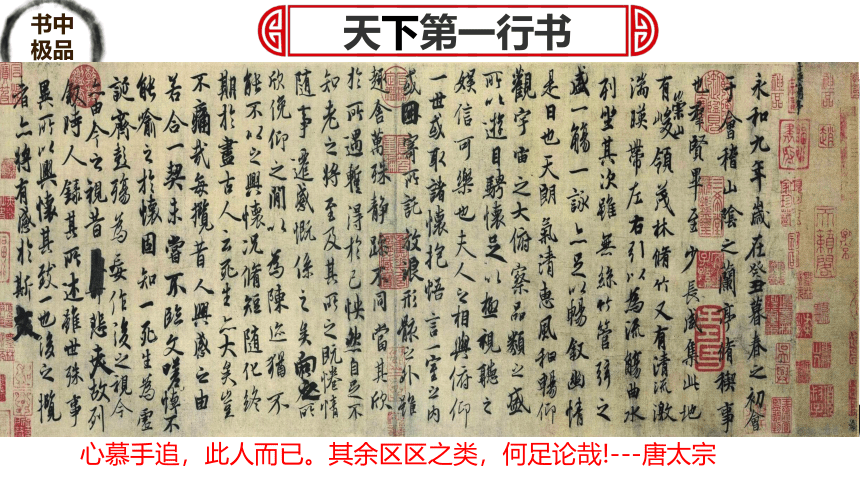 书中
极品
天下第一行书
永和九年歲在癸丑暮春之初會
于會稽山陰之蘭亭脩禊事
也羣賢畢至少長咸集此地
有崇山峻領茂林脩竹又有清流激
湍暎帶左右引以為流觴曲水
列坐其次雖無絲竹管弦之
盛一觴一詠亦足以暢敘幽情
是日也天朗氣清惠風和暢仰
觀宇宙之大俯察品類之盛
所以遊目騁懷足以極視聽之
娛信可樂也夫人之相與俯仰
一世或取諸懷抱悟言一室之內
或因寄所託放浪形骸之外雖
趣舍萬殊靜躁不同當其欣
於所遇暫得於己怏然自足不
知老之將至及其所之既惓情
隨事遷感慨係之矣向之所
欣俛仰之間以為陳迹猶不
能不以之興懷況脩短隨化終
期於盡古人云死生亦大矣豈
不痛哉每攬昔人興感之由
若合一契未嘗不臨文嗟悼不
能喻之於懷固知一死生為虛
誕齊彭殤為妄作後之視今
亦由今之視昔悲夫故列
敘時人錄其所述雖世殊事
異所以興懷其致一也後之攬
者亦將有感於斯文
心慕手追，此人而已。其余区区之类，何足论哉!---唐太宗